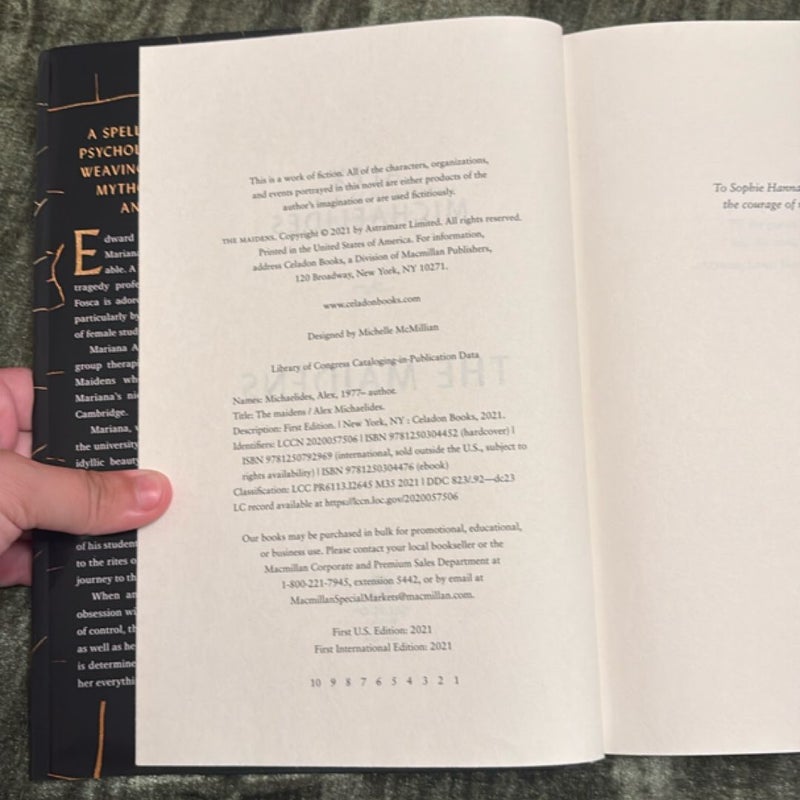 A SPELL
PSYCHOL
WEAVING
MYTHO
AN
Edward
Mariana
able. A
tragedy profe
Fosca is adore
particularly by
of female stud
Mariana A
group therap
Maidens wh
Mariana's ni
Cambridge.
Mariana,
the university
idyllic beauty
of his student
to the rites o
journey to th
When an
obsession wi
of control, th
as well as he
is determine
her everythi
This is a work of fiction. All of the characters, organizations,
and events portrayed in this novel are either products of the
author's imagination or are used fictitiously.
THE MAIDENS. Copyright © 2021 by Astramare Limited. All rights reserved.
Printed in the United States of America. For information,
address Celadon Books, a Division of Macmillan Publishers,
120 Broadway, New York, NY 10271.
www.celadonbooks.com
Designed by Michelle McMillian
Library of Congress Cataloging-in-Publication Data
Names: Michaelides, Alex, 1977– author.
Title: The maidens / Alex Michaelides.
Description: First Edition. | New York, NY : Celadon Books, 2021.
Identifiers: LCCN 2020057506 | ISBN 9781250304452 (hardcover) |
ISBN 9781250792969 (international, sold outside the U.S., subject to
rights availability) | ISBN 9781250304476 (ebook)
Classification: LCC PR6113.I2645 M35 2021 | DDC 823/.92—dc23
LC record available at https://lccn.loc.gov/2020057506
Our books may be purchased in bulk for promotional, educational,
or business use. Please contact your local bookseller or the
Macmillan Corporate and Premium Sales Department at
1-800-221-7945, extension 5442, or by email at
MacmillanSpecialMarkets@macmillan.com.
First U.S. Edition: 2021
First International Edition: 2021
10 9 8 7 6 5 4 3 2 1
To Sophie Hanna
the courage of